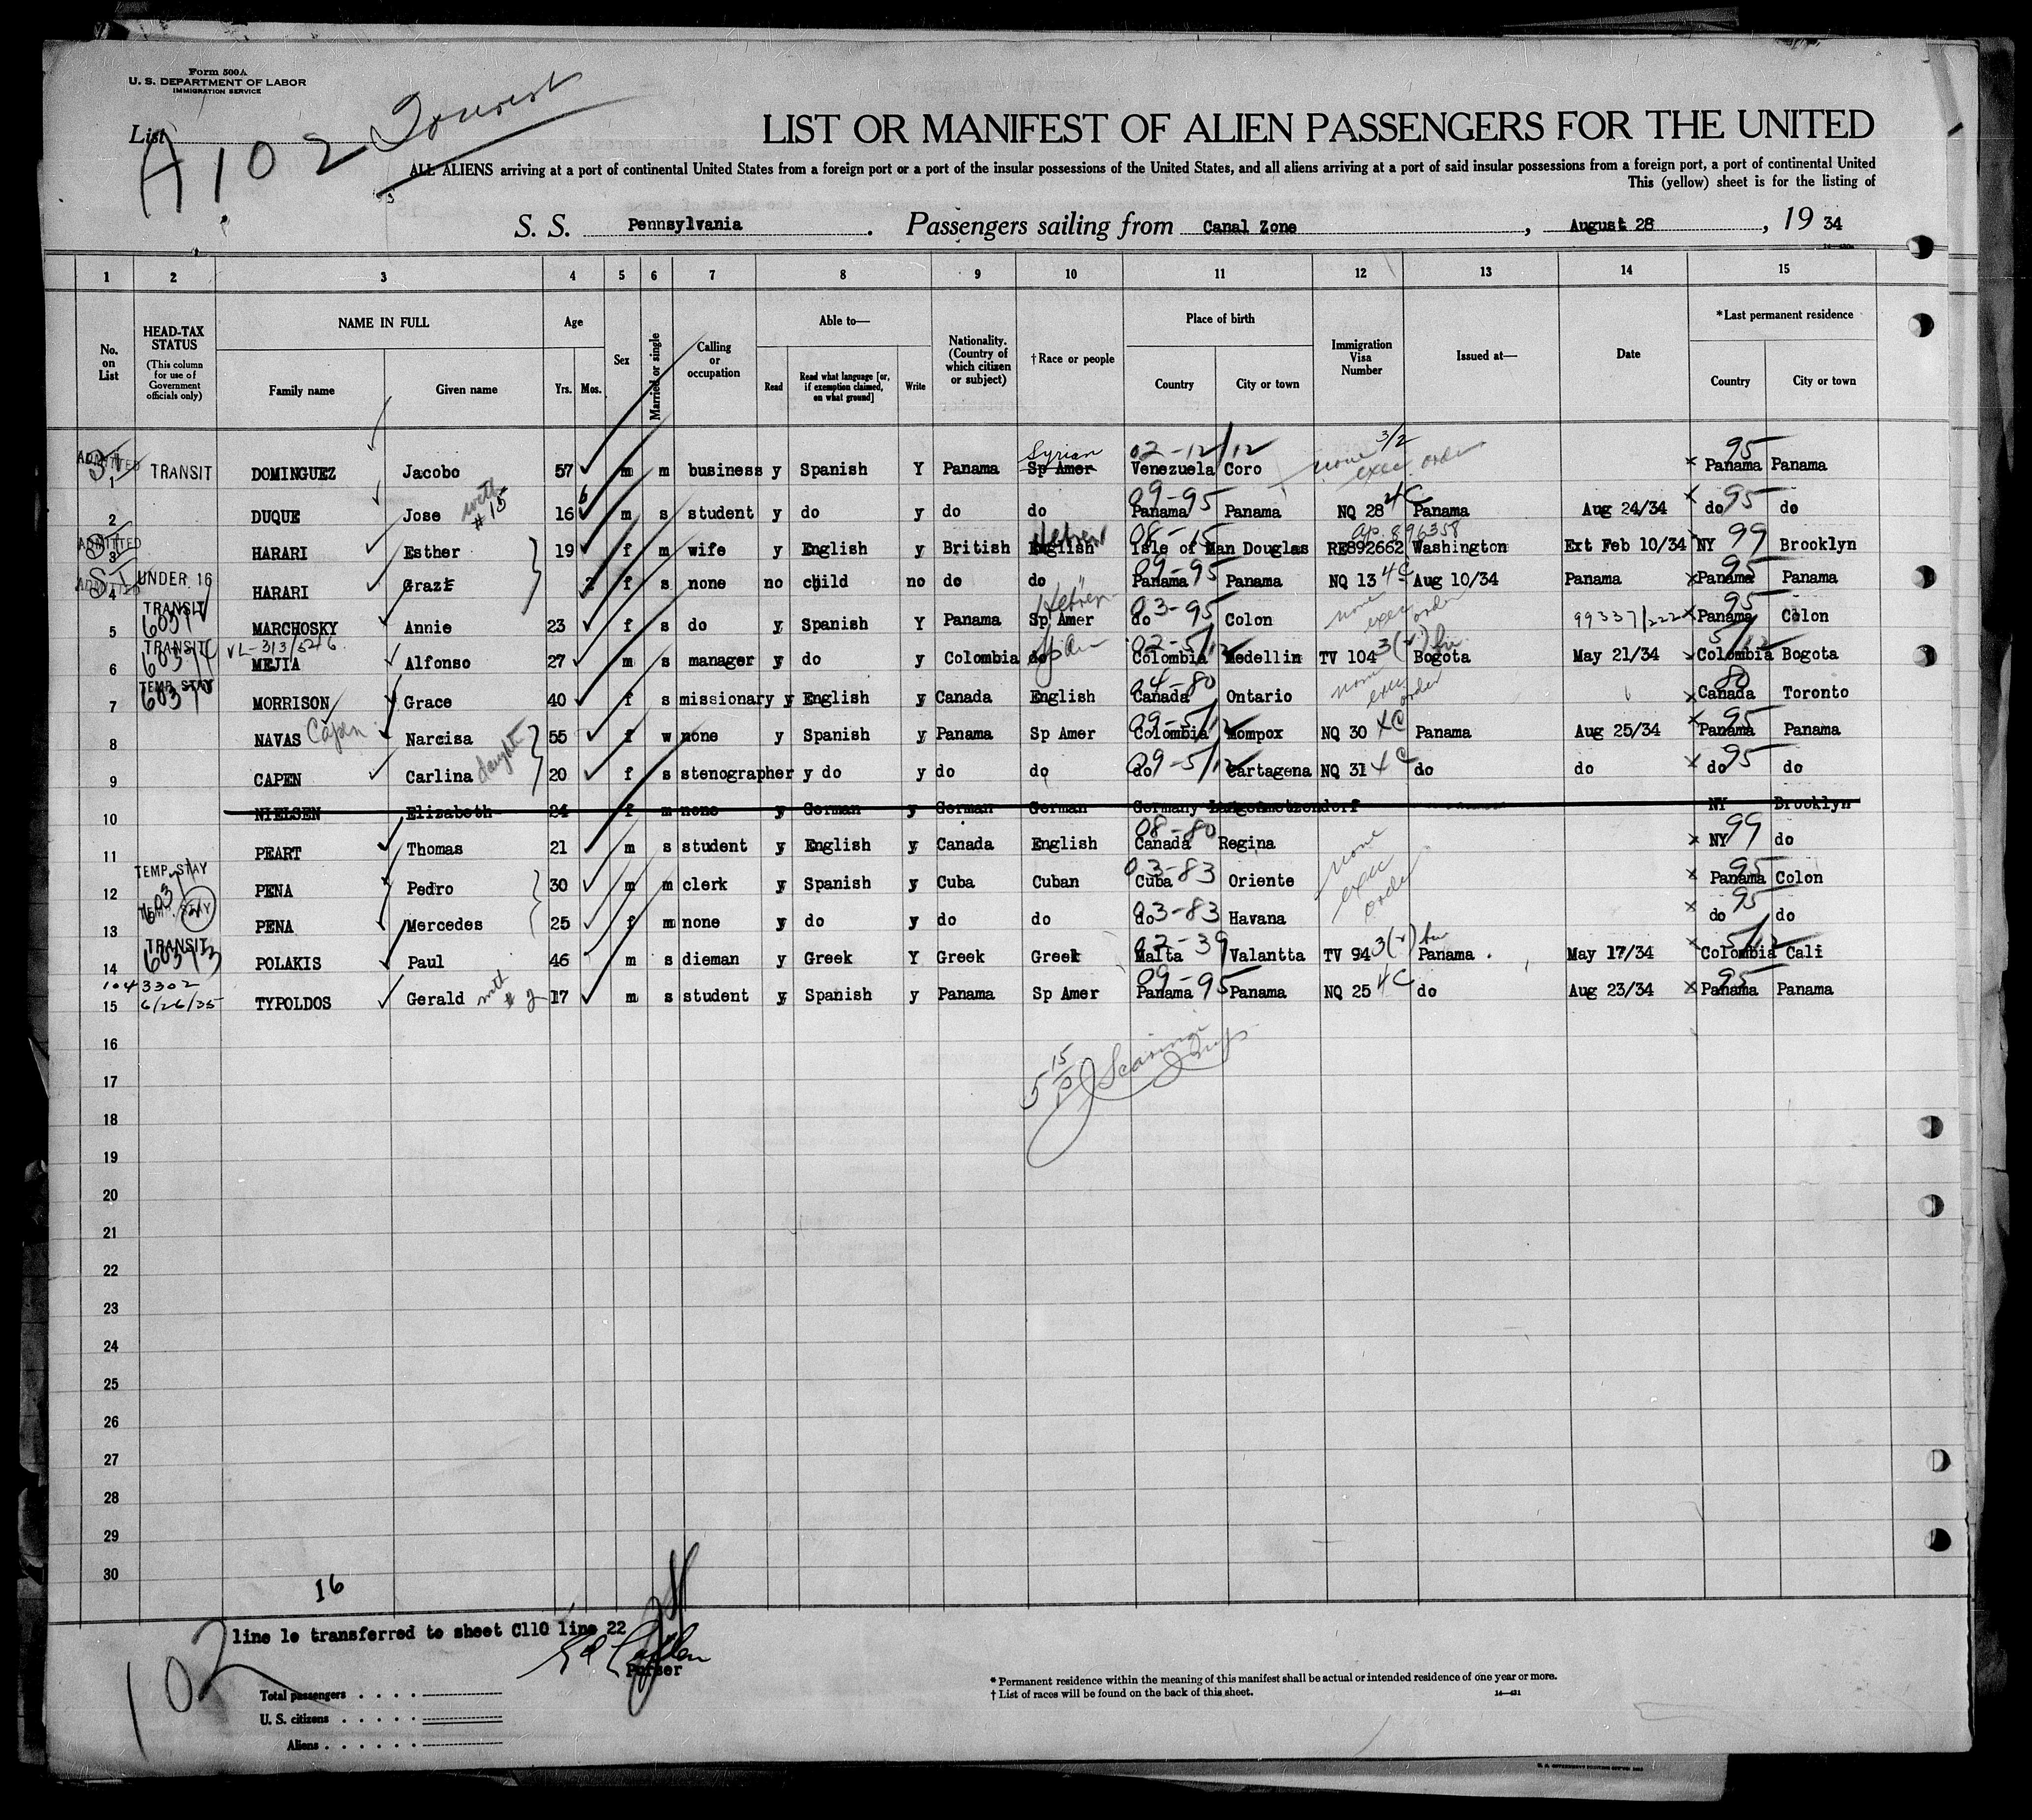 Form 500A
U. S. DEPARTMENT OF LABOR
IMMIGRATION SERVICE
Tourist
List
A 102
LIST OR MANIFEST OF ALIEN PASSENGERS FOR THE UNITED
ALL ALIENS arriving at a port of continental United States from a foreign port or a port of the insular possessions of the United States, and all aliens arriving at a port of said insular possessions from a foreign port, a port of continental United
This (yellow) sheet is for the listing of
S. S. Pennsylvania. Passengers sailing from Canal Zone, August 28, 19 34
1 2 3 4 5 6 7 8 9 10 11 12 13 14 15
No. on List
HEAD-TAX STATUS (This column for use of Government officials only)
NAME IN FULL
Family name Given name
Age
Yrs. Mos.
Sex
Married or single
Calling or occupation
Able to—
Read
Read what language [or, if exemption claimed, on what ground]
Write
Nationality. (Country of which citizen or subject)
†Race or people
Place of birth
Country City or town
Immigration Visa Number
Issued at—
Date
*Last permanent residence
Country City or town
Syrian 02-12/12 3/2 95
ADMITTED 1 TRANSIT DOMINGUEZ Jacobo 57 m m business y Spanish Y Panama Sp Amer Venezuela Coro none exec order x Panama Panama
with #15 6 09-95 4C 95
2 DUQUE Jose 16 m s student y do y do do Panama Panama NQ 28 Panama Aug 24/34 x do do
Hebrew 08-15 896358 99
ADMITTED 3 HARARI Esther 19 f m wife y English y British English Isle of Man Douglas RE892662 Washington Ext Feb 10/34 x NY Brooklyn
09-95 4C 95
ADMITTED 4 UNDER 16 HARARI Grazi 2 f s none no child no do do " Panama Panama NQ 13 Aug 10/34 Panama x Panama Panama
Hebrew 03-95 none exec order 95
5 TRANSIT MARCHOSKY Annie 23 f s do y Spanish Y Panama Sp Amer do Colon 99337/222 x Panama Colon
VL-313/5246 02-5/12 5/12
6 TRANSIT MEJIA Alfonso 27 m s manager y do y Colombia do Colombia Medellin TV 104 3(2) Bogota May 21/34 x Colombia Bogota
04-80 none exec order 80
7 TEMP. STAY MORRISON Grace 40 f s missionary y English y Canada English Canada Ontario x Canada Toronto
Capen 09-5/12 4C 95
8 NAVAS Narcisa 55 f w none y Spanish y Panama Sp Amer Colombia Mompox NQ 30 Panama Aug 25/34 x Panama Panama
09-5/12 4C 95
9 CAPEN Carlina 20 f s stenographer y do y do do do Cartagena NQ 31 do do x do do
10 NIELSEN Elizabeth 24 f m none y German y German German Germany NY Brooklyn
08-80 99
11 PEART Thomas 21 m s student y English y Canada English Canada Regina x NY do
03-83 none exec order 95
12 TEMP. STAY PENA Pedro 30 m m clerk y Spanish y Cuba Cuban Cuba Oriente x Panama Colon
03-83 95
13 TEMP. STAY PENA Mercedes 25 f m none y do y do do do Havana x do do
02-39 3(2) 5/12
14 TRANSIT POLAKIS Paul 46 m s dieman y Greek Y Greek Greek Malta Valantta TV 94 Panama . May 17/34 x Colombia Cali
1043302 09-95 4C 95
15 6/26/35 TYPOLDOS Gerald with # 2 17 m s student y Spanish y Panama Sp Amer Panama Panama NQ 25 do Aug 23/34 x Panama Panama
16
17
18
19
20
21
22
23
24
25
26
27
28
29
30
16
line 1o transferred to sheet C110 line 22
102
Purser
Total passengers
U. S. citizens
Aliens
* Permanent residence within the meaning of this manifest shall be actual or intended residence of one year or more.
† List of races will be found on the back of this sheet.
14—431